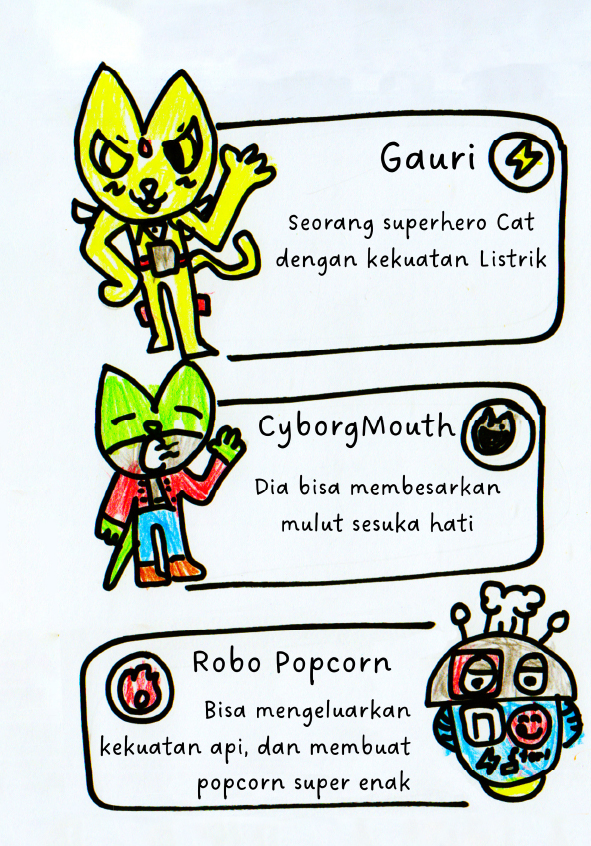 Gauri
Seorang superhero Cat
dengan kekuatan Listrik
CyborgMouth
Dia bisa membesarkan
mulut sesuka hati
Robo Popcorn
Bisa mengeluarkan
kekuatan api, dan membuat
popcorn super enak